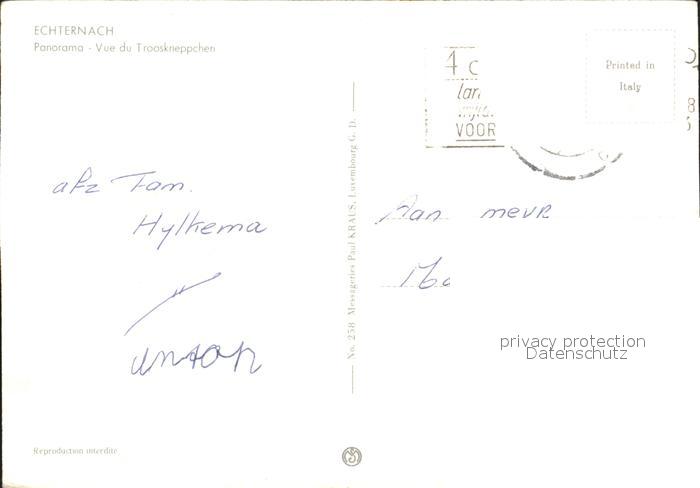 ECHTERNACH
Panorama - Vue du Trooskneppchen
4 c
lan
VOOR
Printed in
Italy
8
afz Fam.
Hylkema
No. 258 Messageries Paul KRAUS, Luxembourg G. D.
Aan mevr
privacy protection
Datenschutz
Reproduction interdite